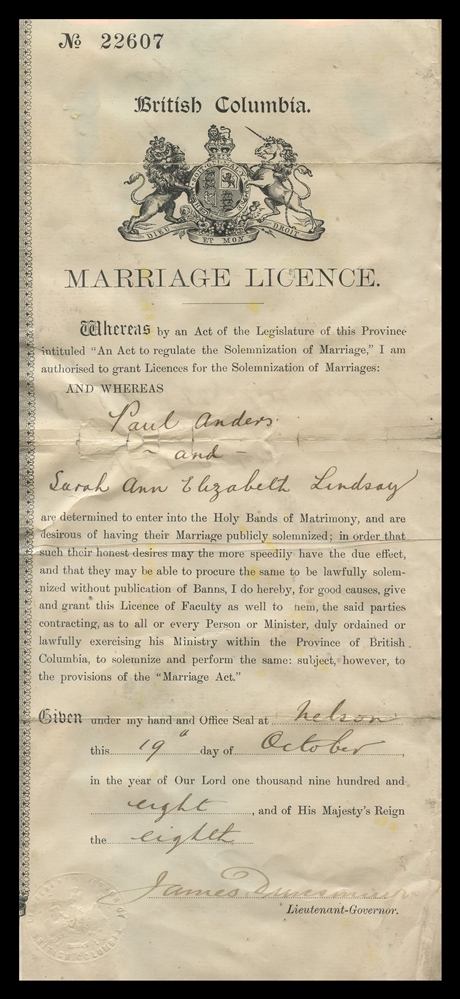 № 22607
British Columbia.
DIEU ET MON DROIT
MARRIAGE LICENCE.
Whereas by an Act of the Legislature of this Province
intituled "An Act to regulate the Solemnization of Marriage," I am
authorised to grant Licences for the Solemnization of Marriages:
AND WHEREAS
Paul Anders
- and -
Sarah Ann Elizabeth Lindsay
are determined to enter into the Holy Bands of Matrimony, and are
desirous of having their Marriage publicly solemnized; in order that
such their honest desires may the more speedily have the due effect,
and that they may be able to procure the same to be lawfully solem-
nized without publication of Banns, I do hereby, for good causes, give
and grant this Licence of Faculty as well to hem, the said parties
contracting, as to all or every Person or Minister, duly ordained or
lawfully exercising his Ministry within the Province of British
Columbia, to solemnize and perform the same: subject, however, to
the provisions of the "Marriage Act."
Given under my hand and Office Seal at Nelson
this 19th day of October,
in the year of Our Lord one thousand nine hundred and
eight, and of His Majesty's Reign
the eighth.
James Dunsmuir
Lieutenant-Governor.